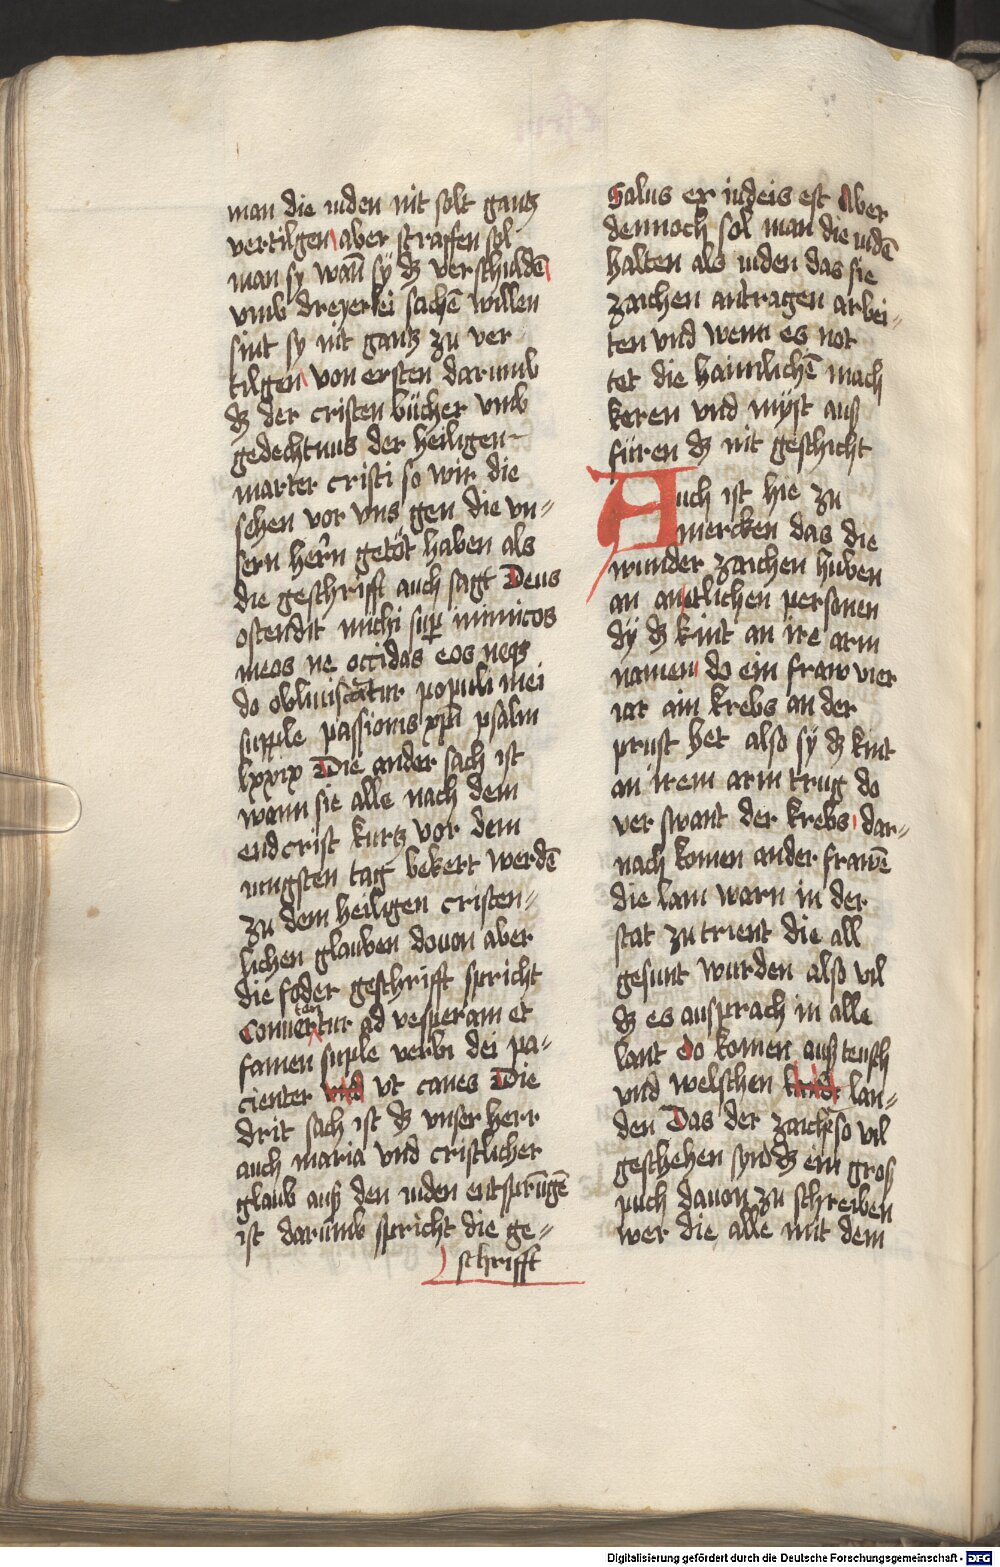 man die iuden nit solt gantz
vertilgen aber straffen sol
man sy wañ sy dz verschuldē
vmb dreyerlei sachē willen
sint sy nit gantz zu ver
tilgen von ersten darumb
dz der cristen bücher vmb
gedechtnus der heiligen
marter cristi so wir die
sehen vor vns gen die vn=
sern herñ getöt haben als
die geschrifft auch sagt Deus
ostendit michi sup inimicos
meos ne occidas eos neqz
do obliuiscātur populi mei
supple passionis xp̄i psalm
lxxix Die ander sach ist
wann sie alle nach dem
endcrist kurtz vor dem
iungsten tag bekert werdē
zu dem heiligen cristen=
lichen glauben douon aber
die foder geschrifft spricht
Conuertentur ad vesperam et
famen suple verbi dei pa=
cienter vnd vt canes Die
drit sach ist dz vnser herr
auch maria vnd cristlicher
glaub auß den iuden entsprūgē
ist darumb spricht die ge=
schrifft
Salus ex iudeis est Aber
dennoch sol man die iudē
halten als iuden das sie
zaichen antragen arbei=
ten vnd wenn es not
tet die haimlichē mach
keren vnd myst auß
füren dz nit geschicht
Auch ist hie zu
mercken das die
wunder zaichen huben
an an etlichen personen
dy dz kint an ire arm
namen do ein fraw vier
iar ain krebs an der
prust het also sy dz kint
an irem arm trug do
ver swant der krebs dar=
nach komen ander frawē
die lam warn in der
stat zu trient die all
gesunt wurden also vil
dz es aussprach in alle
lant do komen auß teusch
vnd welschen lan=
den Das der zaichē so vil
geschehen synd dz ein gros
puch dauon zu schreiben
wer die alle mit dem
Digitalisierung gefördert durch die Deutsche Forschungsgemeinschaft - DFG